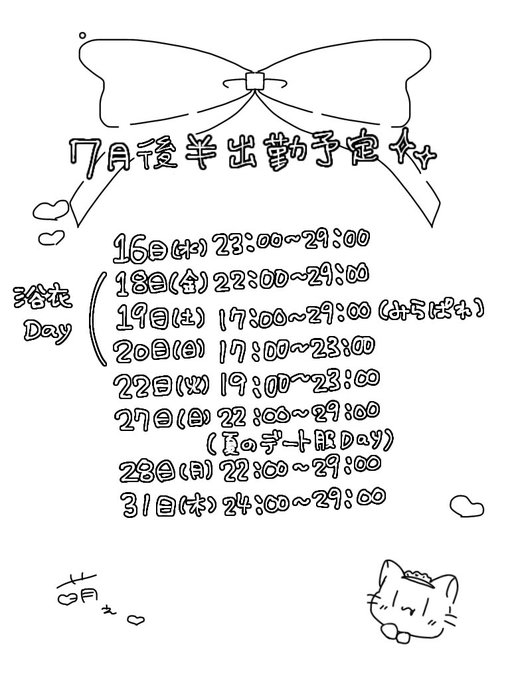 7月後半出勤予定
16日(水) 23:00~29:00
18日(金) 22:00~29:00
浴衣
Day
19日(土) 17:00~29:00 (みらぱれ)
20日(日) 17:00~23:00
22日(火) 19:00~23:00
27日(日) 22:00~29:00
(夏のデート服Day)
28日(月) 22:00~29:00
31日(木) 24:00~29:00